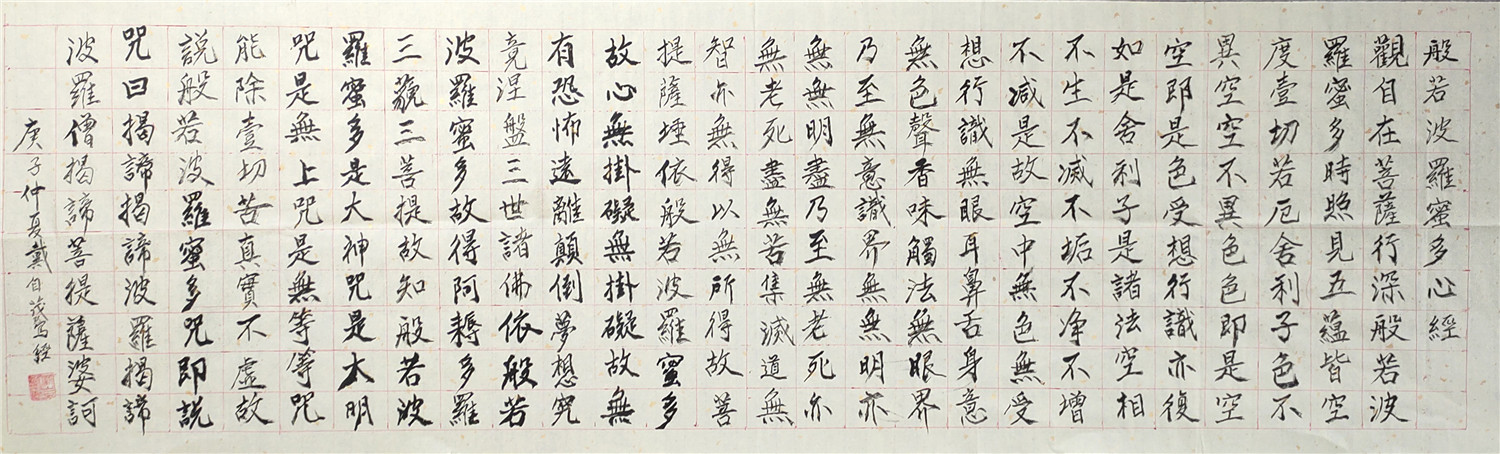 般若波羅蜜多心經
觀自在菩薩行深般若波
羅蜜多時照見五蘊皆空
度壹切苦厄舍利子色不
異空空不異色色即是空
空即是色受想行識亦復
如是舍利子是諸法空相
不生不滅不垢不净不增
不减是故空中無色無受
想行識無眼耳鼻舌身意
無色聲香味觸法無眼界
乃至無意識界無無明亦
無無明盡乃至無老死亦
無老死盡無苦集滅道無
智亦無得以無所得故菩
提薩埵依般若波羅蜜多
故心無掛礙無掛礙故無
有恐怖遠離顛倒夢想究
竟涅盤三世諸佛依般若
波羅蜜多故得阿耨多羅
三藐三菩提故知般若波
羅蜜多是大神咒是大明
咒是無上咒是無等等咒
能除壹切苦真實不虛故
說般若波羅蜜多咒即說
咒曰揭諦揭諦波羅揭諦
波羅僧揭諦菩提薩婆訶
庚子仲夏戴自茂寫經